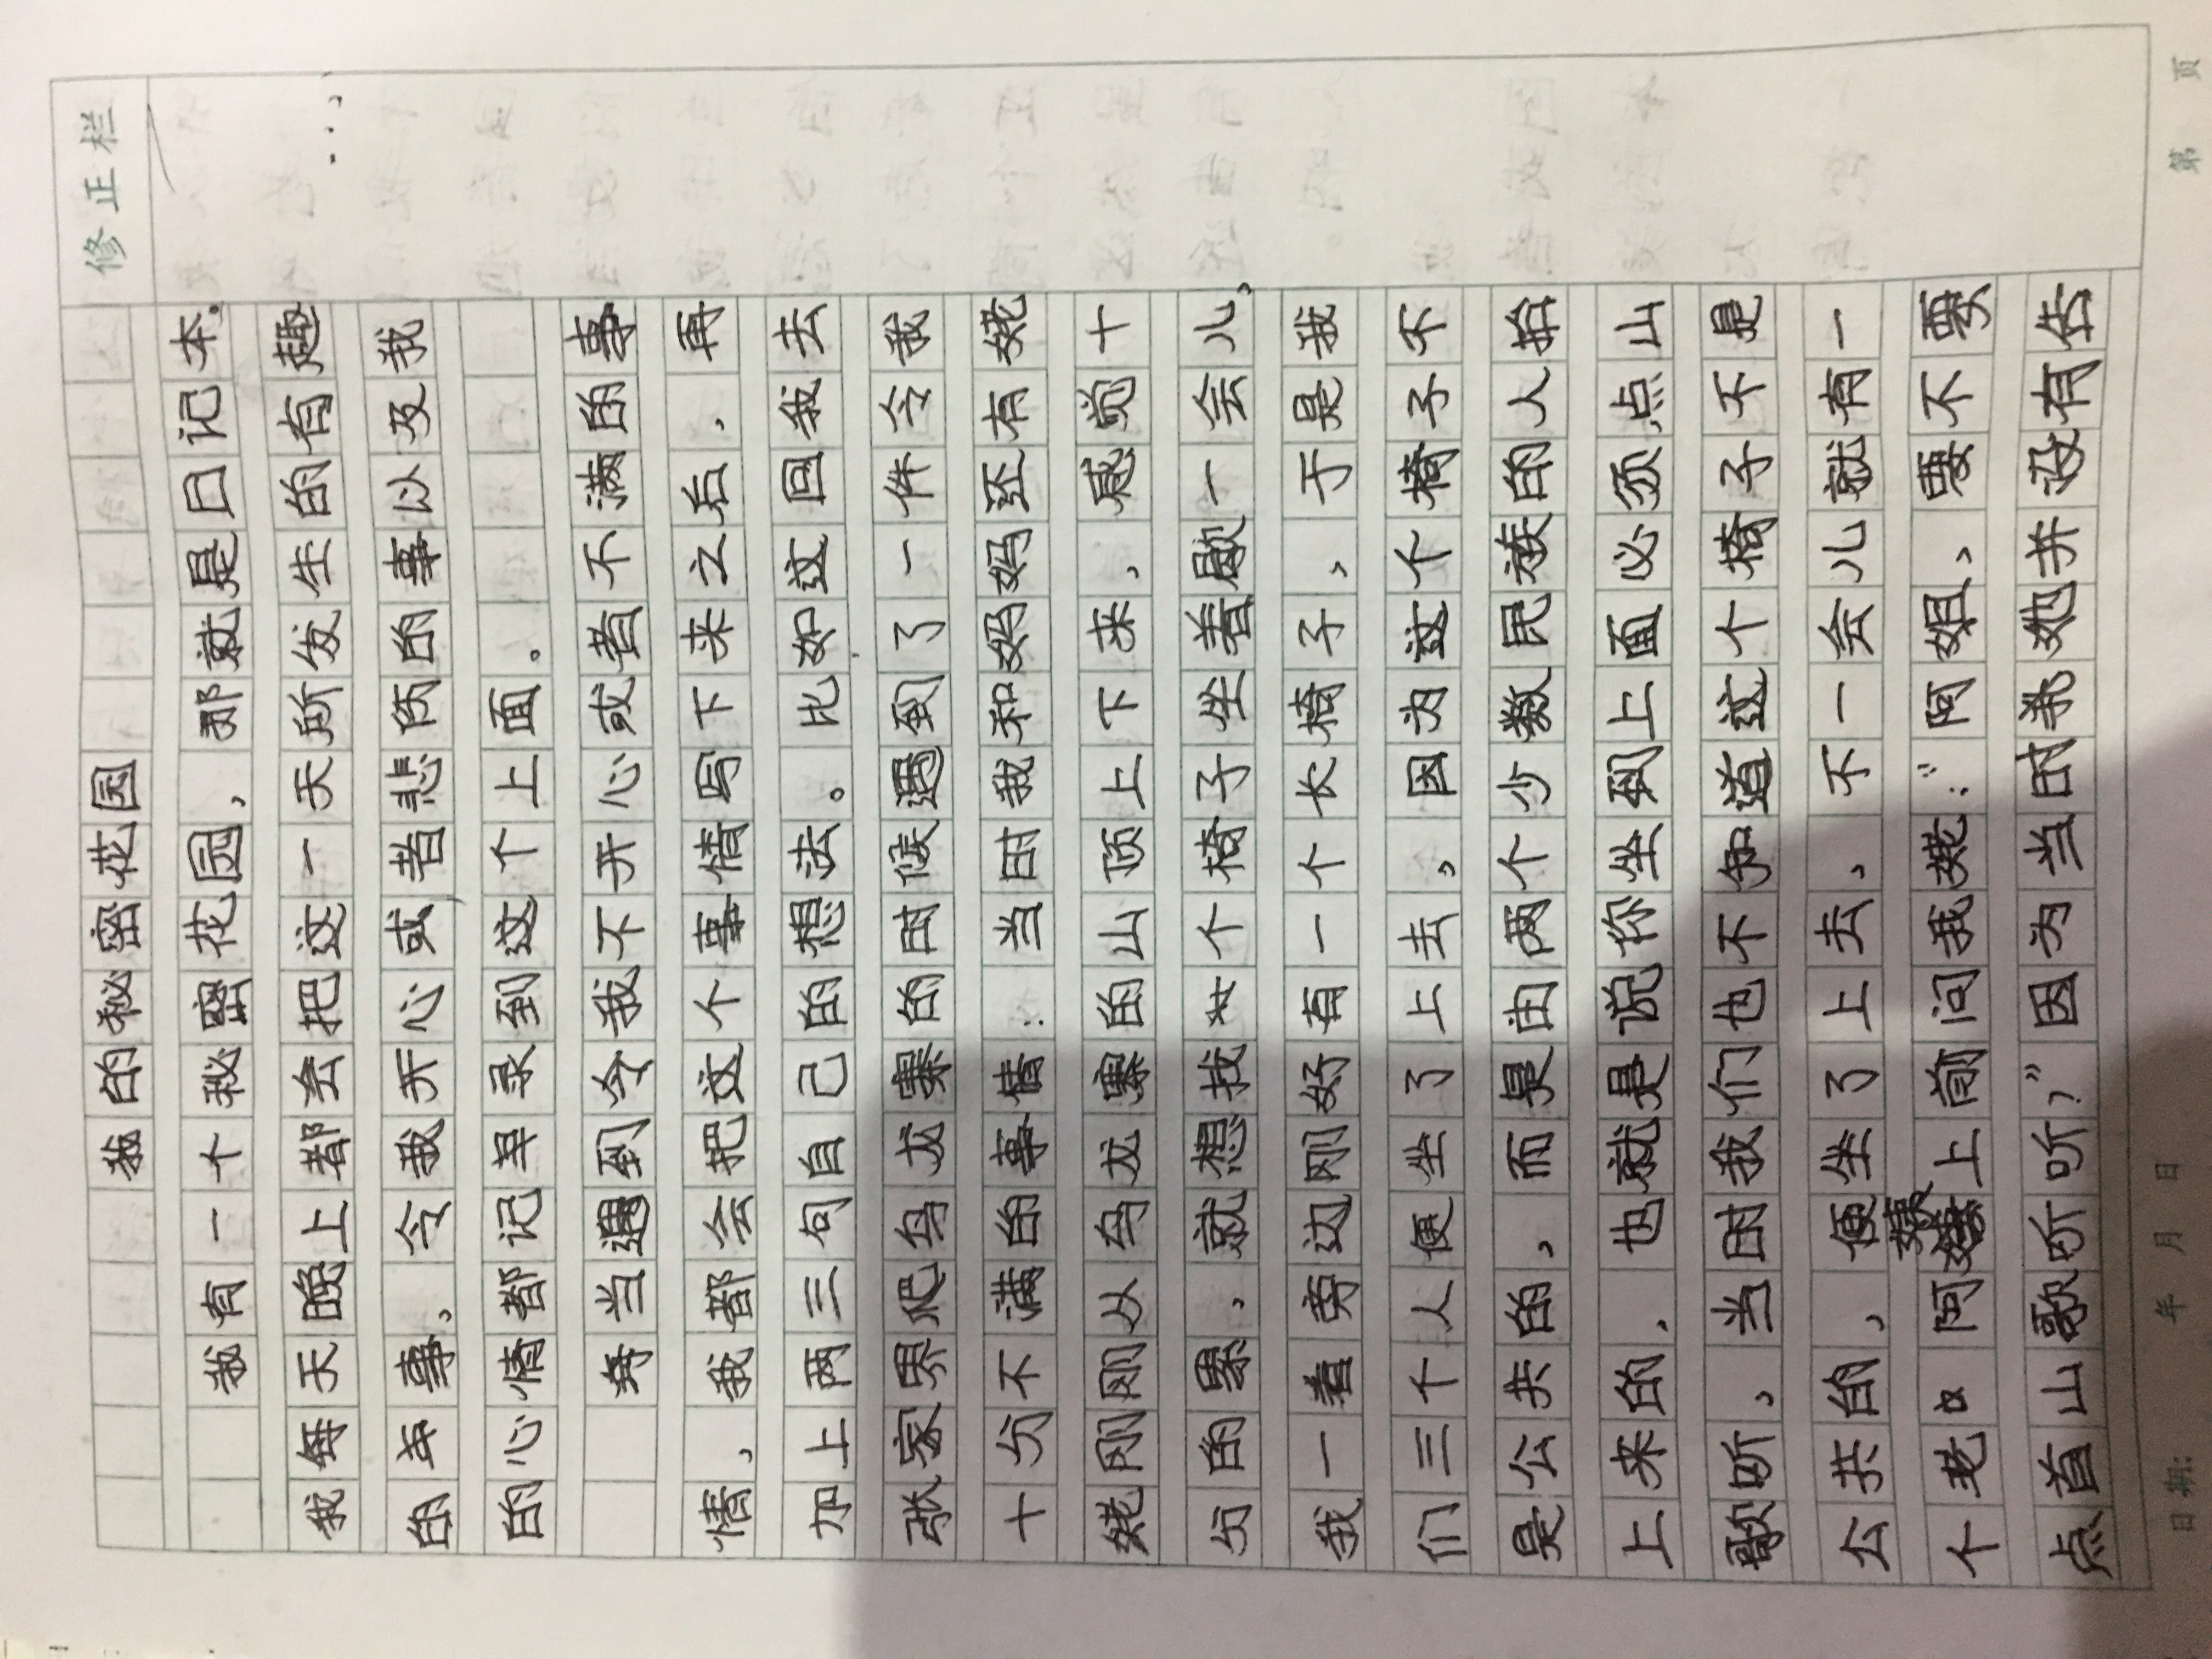 修正栏
我的秘密花园
我有一个秘密花园,那就是日记本.
我每天晚上都会把这一天所发生的有趣
的事、令我开心或者悲伤的事以及我
的心情都记录到这个上面。
每当遇到令我不开心或者不满的事
情,我都会把这个事情写下来之后,再
加上两三句自己的想法。比如这回我去
张家界爬乌龙寨的时候遇到了一件令我
十分不满的事情:当时我和妈妈还有姥
姥刚刚从乌龙寨的山顶上下来,感觉十
分的累,就想找个椅子坐着歇一会儿,
我一看旁边刚好有一个长椅子,于是我
们三个人便坐了上去,因为这个椅子不
是公共的,而是由两个少数民族的人抬
上来的,也就是说你坐到上面必须点山
歌听,当时我们也不知道这个椅子不是
公共的,便坐了上去,不一会儿就有一
个老阿姨上前问我姥:“阿姐,要不要
点首山歌听听,”因为当时她并没有告
日期: 年 月 日 第 页